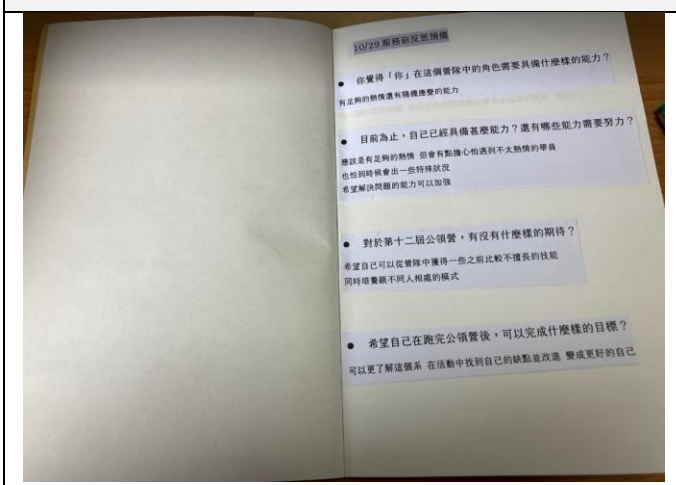 10/29 服務前反思預備
● 你覺得「你」在這個營隊中的角色需要具備什麼樣的能力？
有足夠的熱情還有隨機應變的能力
● 目前為止，自己已經具備甚麼能力？還有哪些能力需要努力？
應該是有足夠的熱情 但會有點擔心怕遇到不太熱情的學員
也怕到時候會出一些特殊狀況
希望解決問題的能力可以加強
● 對於第十二屆公領營，有沒有什麼樣的期待？
希望自己可以從營隊中獲得一些之前比較不擅長的技能
同時培養跟不同人相處的模式
● 希望自己在跑完公領營後，可以完成什麼樣的目標？
可以更了解這個系 在活動中找到自己的缺點並改進 變成更好的自己